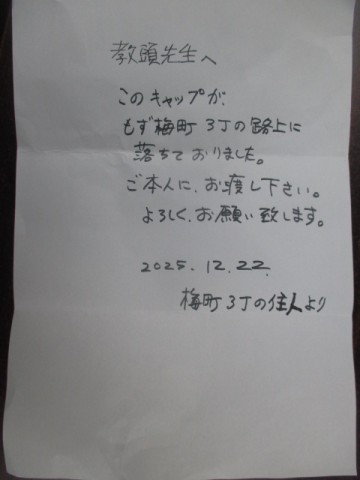 教頭先生へ
このキャップが、
もず梅町3丁の路上に
落ちておりました。
ご本人に、お渡し下さい。
よろしく、お願い致します。
2025.12.22.
梅町3丁の住人より